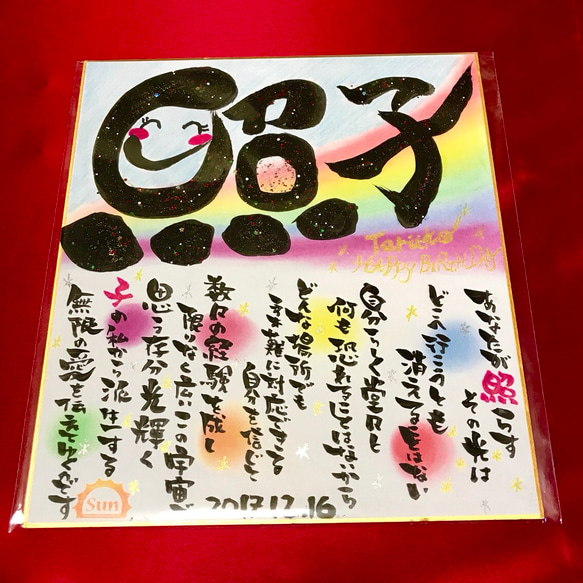 照子
Teruko
Happy Birthday
あなたが照らす
その光は
どこの行こうとも
消える事はない
自分らしく堂々と
何も恐れることはないから
どんな場所でも
臨機に対応できる
自分を信じて
数々の経験を感じ
限りなく広いこの宇宙で
思う存分光輝く
子の私から派生する
無限の愛を伝えてゆくのです
2017.12.16
Sun